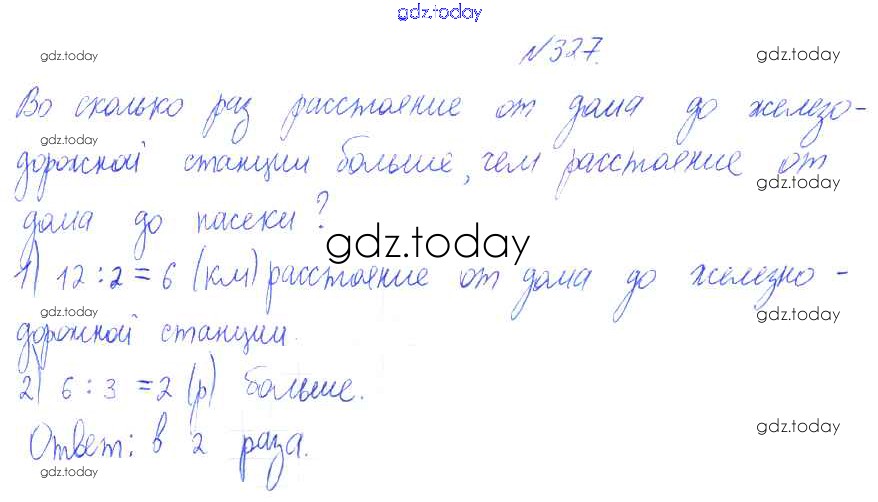 gdz.today
№327.
gdz.today gdz.today
Во сколько раз расстояние от дома до железо-
gdz.today
дорожной станции больше, чем расстояние от
gdz.today
дома до пасеки?
gdz.today
1) 12 : 2 = 6 (км) расстояние от дома до железно-
gdz.today gdz.today
дорожной станции.
2) 6 : 3 = 2 (р) больше.
Ответ: в 2 раза.
gdz.today
gdz.today